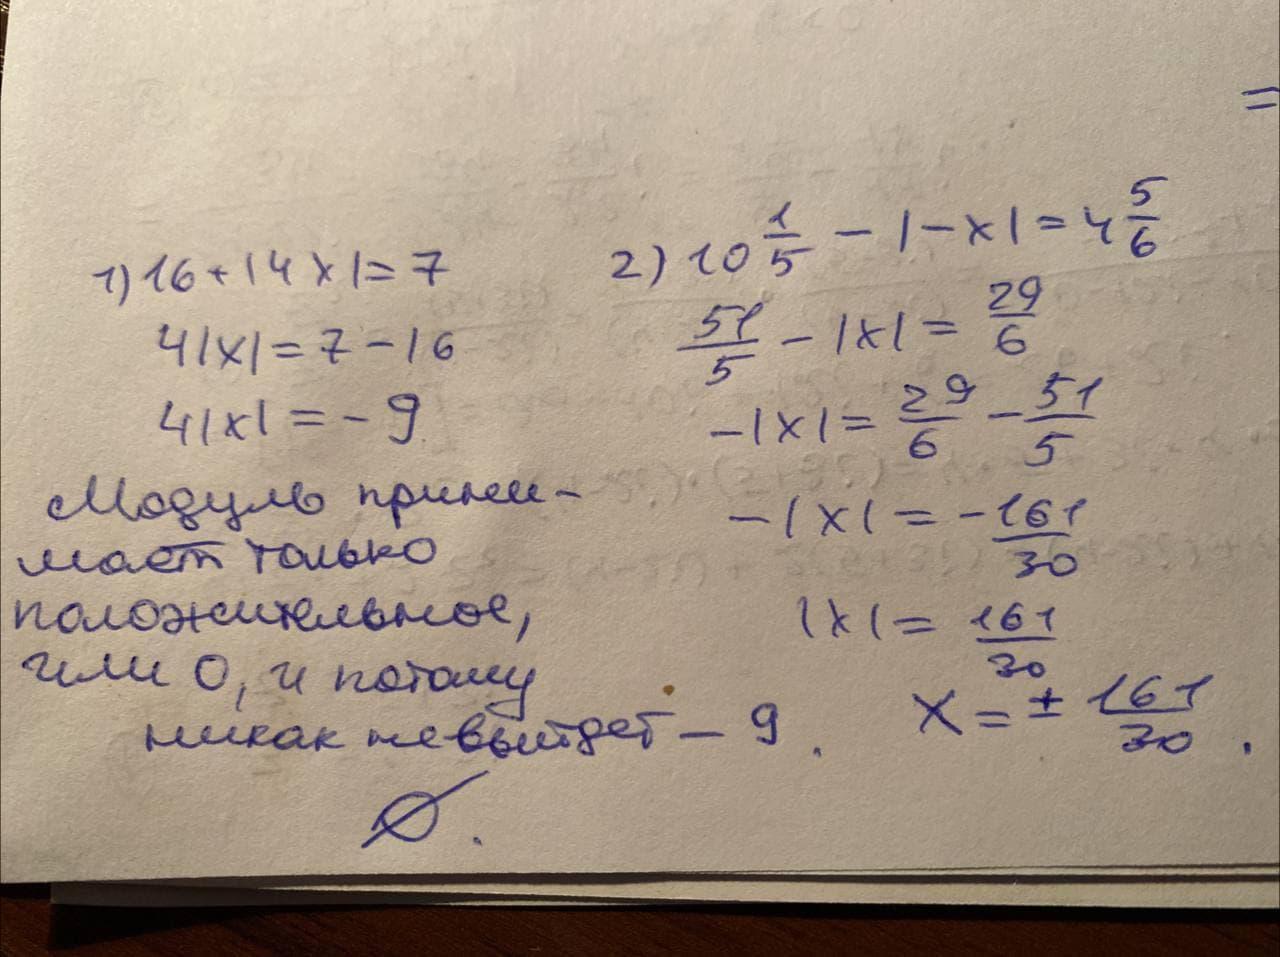 =
1) 16 + |4x| = 7
4|x| = 7 - 16
4|x| = - 9.
Модуль прини-
мает только
положительное,
или 0, и потому
никак не выйдет - 9.
∅.
2) 10 1/5 - |-x| = 4 5/6
51/5 - |x| = 29/6
-|x| = 29/6 - 51/5
-|x| = - 161/30
|x| = 161/30
X = ± 161/30.